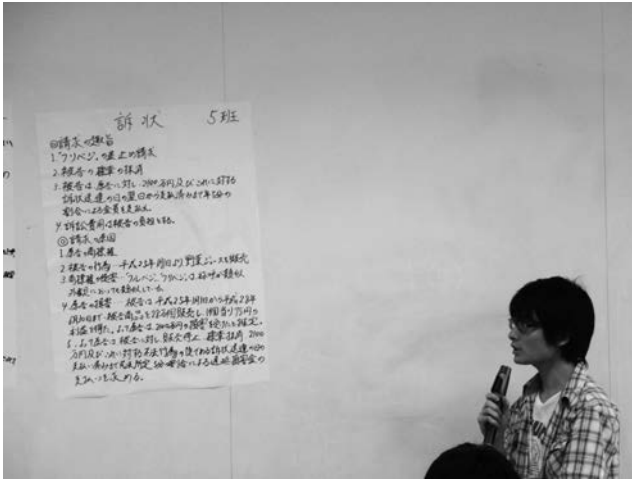 訴状 5班
◎請求の趣旨
1.「フリベジ」の差止め請求
2.被告の 棄の抹消
3.被告は、原告に対し、2400万円及びこれに対する
訴状送達の日の翌日から支払済みまで年5分の
割合による金員を支払え
4.訴訟費用は被告の負担とする。
◎請求の原因
1.原告の商標権
2.被告の行為…平成23年1月1日より野菜ジュースを販売
3.商標権の侵害…「フルベジ」「フリベジ」は称呼が類似
外観においても類似している
4.原告の損害…被告は平成23年1月1日から平成23年
6月30日まで、被告商品を 万個販売し、1個当り 円の
利益を得た。よって原告は2400万円の損害を受けたと推定。
5.よって原告は被告に対し、販売停止、 抹消、2400
万円及びこれに対する不法行為の後である訴状送達の日の
支払い済みまで民法所定5分の割合による遅延損害金の
支払いを求める。